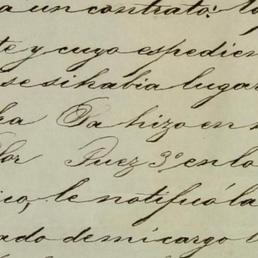 a un contrato: lo
te y cuyo expedien
se si habia lugar
ha Pa hizo en
Por Juez 3º en lo
ico, le notificó la
ado de mi cargo